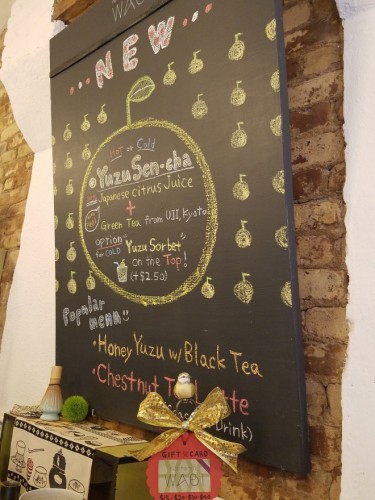 WAO!
... NEW ...
Hot or Cold
Yuzu Sen-cha
Japanese citrus Juice
+
Green Tea from UJI, Kyoto
option
for COLD
Yuzu Sorbet
on the Top!
(+$2.50)
Popular
menu
• Honey Yuzu w/ Black Tea
• Chestnut
Drink)
GIFT CARD
WAO!